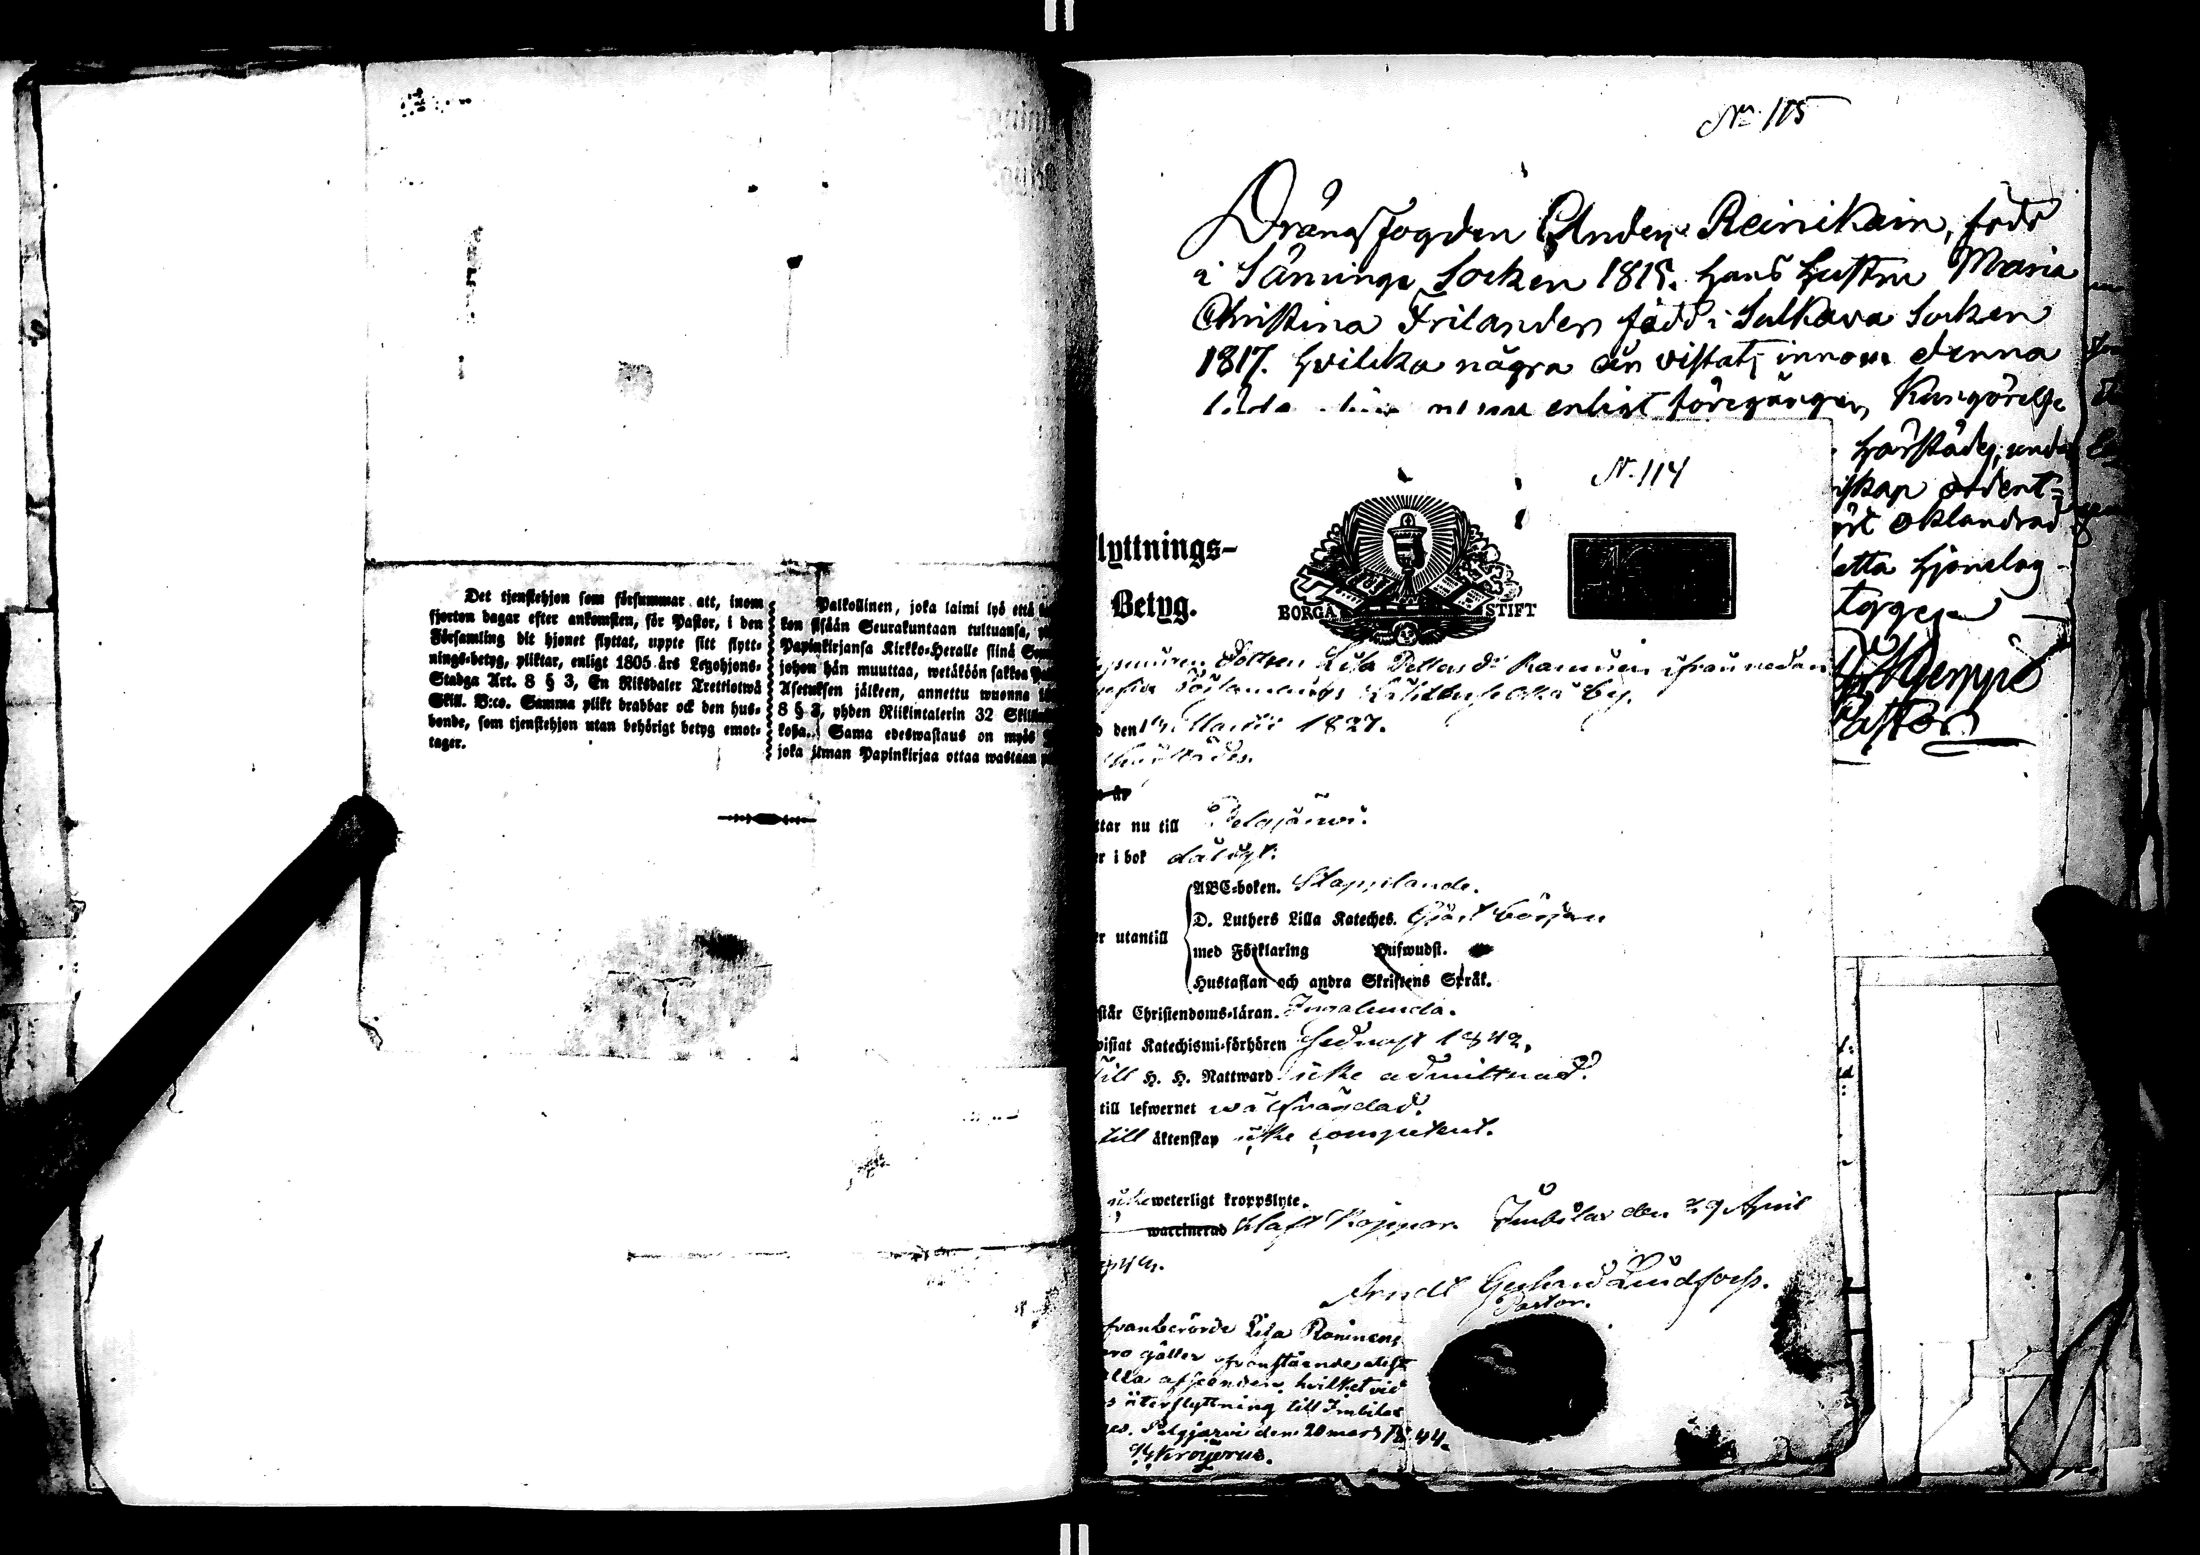 Det tjenstehjon som försummar att, inom
fjorton dagar efter ankomsten, för Pastor, i den
Församling dit hjonet flyttat, uppte sitt flytt-
nings-betyg, pliktar, enligt 1805 års Legohjons-
Stadga Art. 8 § 3, En Riksdaler Trettiotwå
Skill. B:co. Samma plikt drabbar ock den hus-
bonde, som tjenstehjon utan behörigt betyg emot-
tager.
Palkollinen, joka laimi lyö että
kon sisään Seurakuntaan tultuansa,
Papinkirjansa Kirkko-Heralle siinä
johon hän muuttaa, wetäköön sakkoa
Asetuksen jälkeen, annettu wuonna
8 § 3, yhden Riikintalerin 32
kosa. Sama edeswastaus on myös
joka ilman Papinkirjaa ottaa wastaan
No 115
Drängfogden Anders Reinikain, född
i Säminge Socken 1815. hans hustru Maria
Christina Frilander född i Sulkava Socken
1817. hvilka några år vistats innom denna
enligt föregången Kungörelse
härstädes, unde
skap ordent-
oklandrad
etta hjonelag
tygga
Pastor
N. 114
lyttnings-
Betyg.
BORGÅ STIFT
dottren Lisa Pettersd:r Ranuen ifrån nedan
by.
den Martii 1827.
härstädes.
ttar nu till Pelgjärwi.
er i bok dåligt.
ABC-boken. Stapplande.
D. Luthers Lilla Kateches. Gjört början
er utantill
med Förklaring Hufwudst.
Hustaflan och andra Skriftens Språk.
står Christendoms-läran. Ingalunda.
vistat Katechismi-förhören sednast 1842.
till H. H. Nattward icke admitterad.
till lefwernet wälfrägdad.
till äktenskap icke competent.
icke weterligt kroppslyte.
waccinerad haft koppor. Imbilax den 29 April
Arndt Gerhard Lindforss.
Pastor.
ofvanberörde Lisa Raninens
gäller ofvanstående attest
alla afseenden, hvilket vid
s återflyttning till Imbilax
Pelgjärvi den 20 mars 1844.